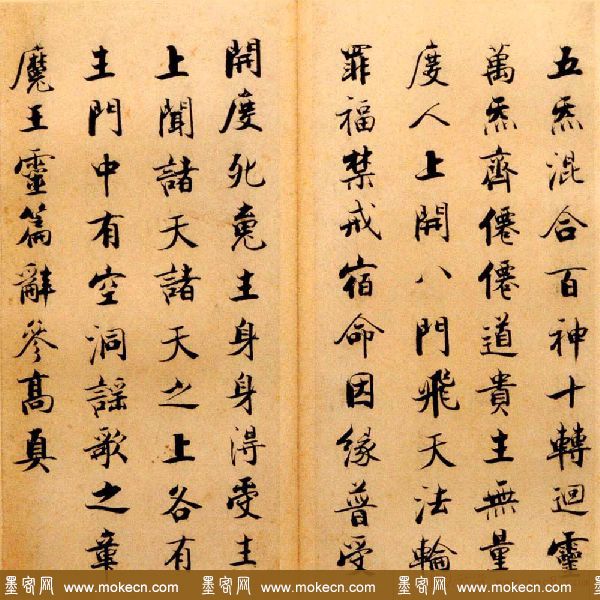 五炁混合百神十轉迴靈
萬炁齊僊僊道貴生無量
度人上開八門飛天法輪
罪福禁戒宿命因緣普受
開度死䰟生身身得受生
上聞諸天諸天之上各有
生門中有空洞謠歌之章
魔王靈篇辭參高真
墨客网 www.mokecn.com 墨客网 www.mokecn.com 墨客网 www.mokecn.com